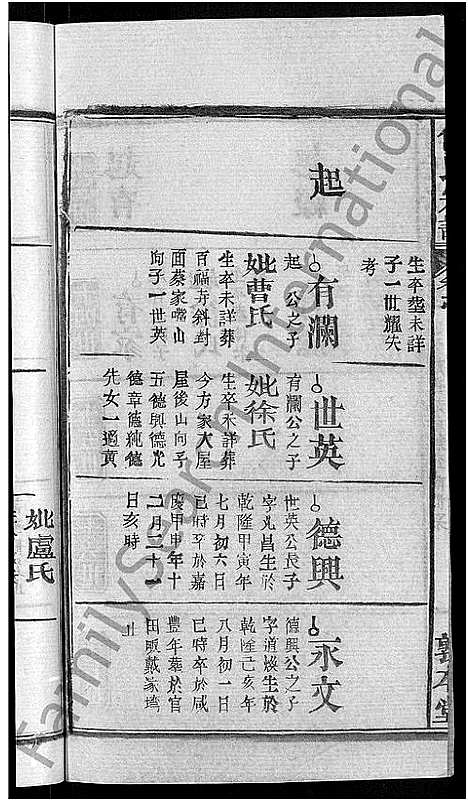 生卒塟未詳
子一世耀失
考
起
有瀾
起公之子
妣曹氏
生卒未詳葬
百福寺斜對
面蔡家嘴山
向子一世英
世英
有瀾公之子
妣徐氏
生卒未詳葬
今方家大屋
屋後山向子
五德興德光
德章德純德
先女一適黃
德興
世英公長子
字克昌生於
乾隆甲寅年
七月初六日
巳時卒於嘉
慶甲申年十
二月二十一
日亥時
永文
德興公之子
字道煥生於
乾隆己亥年
八月初一日
巳時卒於咸
豐年葬於官
田畈戴家塆
止
敦本堂
妣盧氏
FamilySearch International